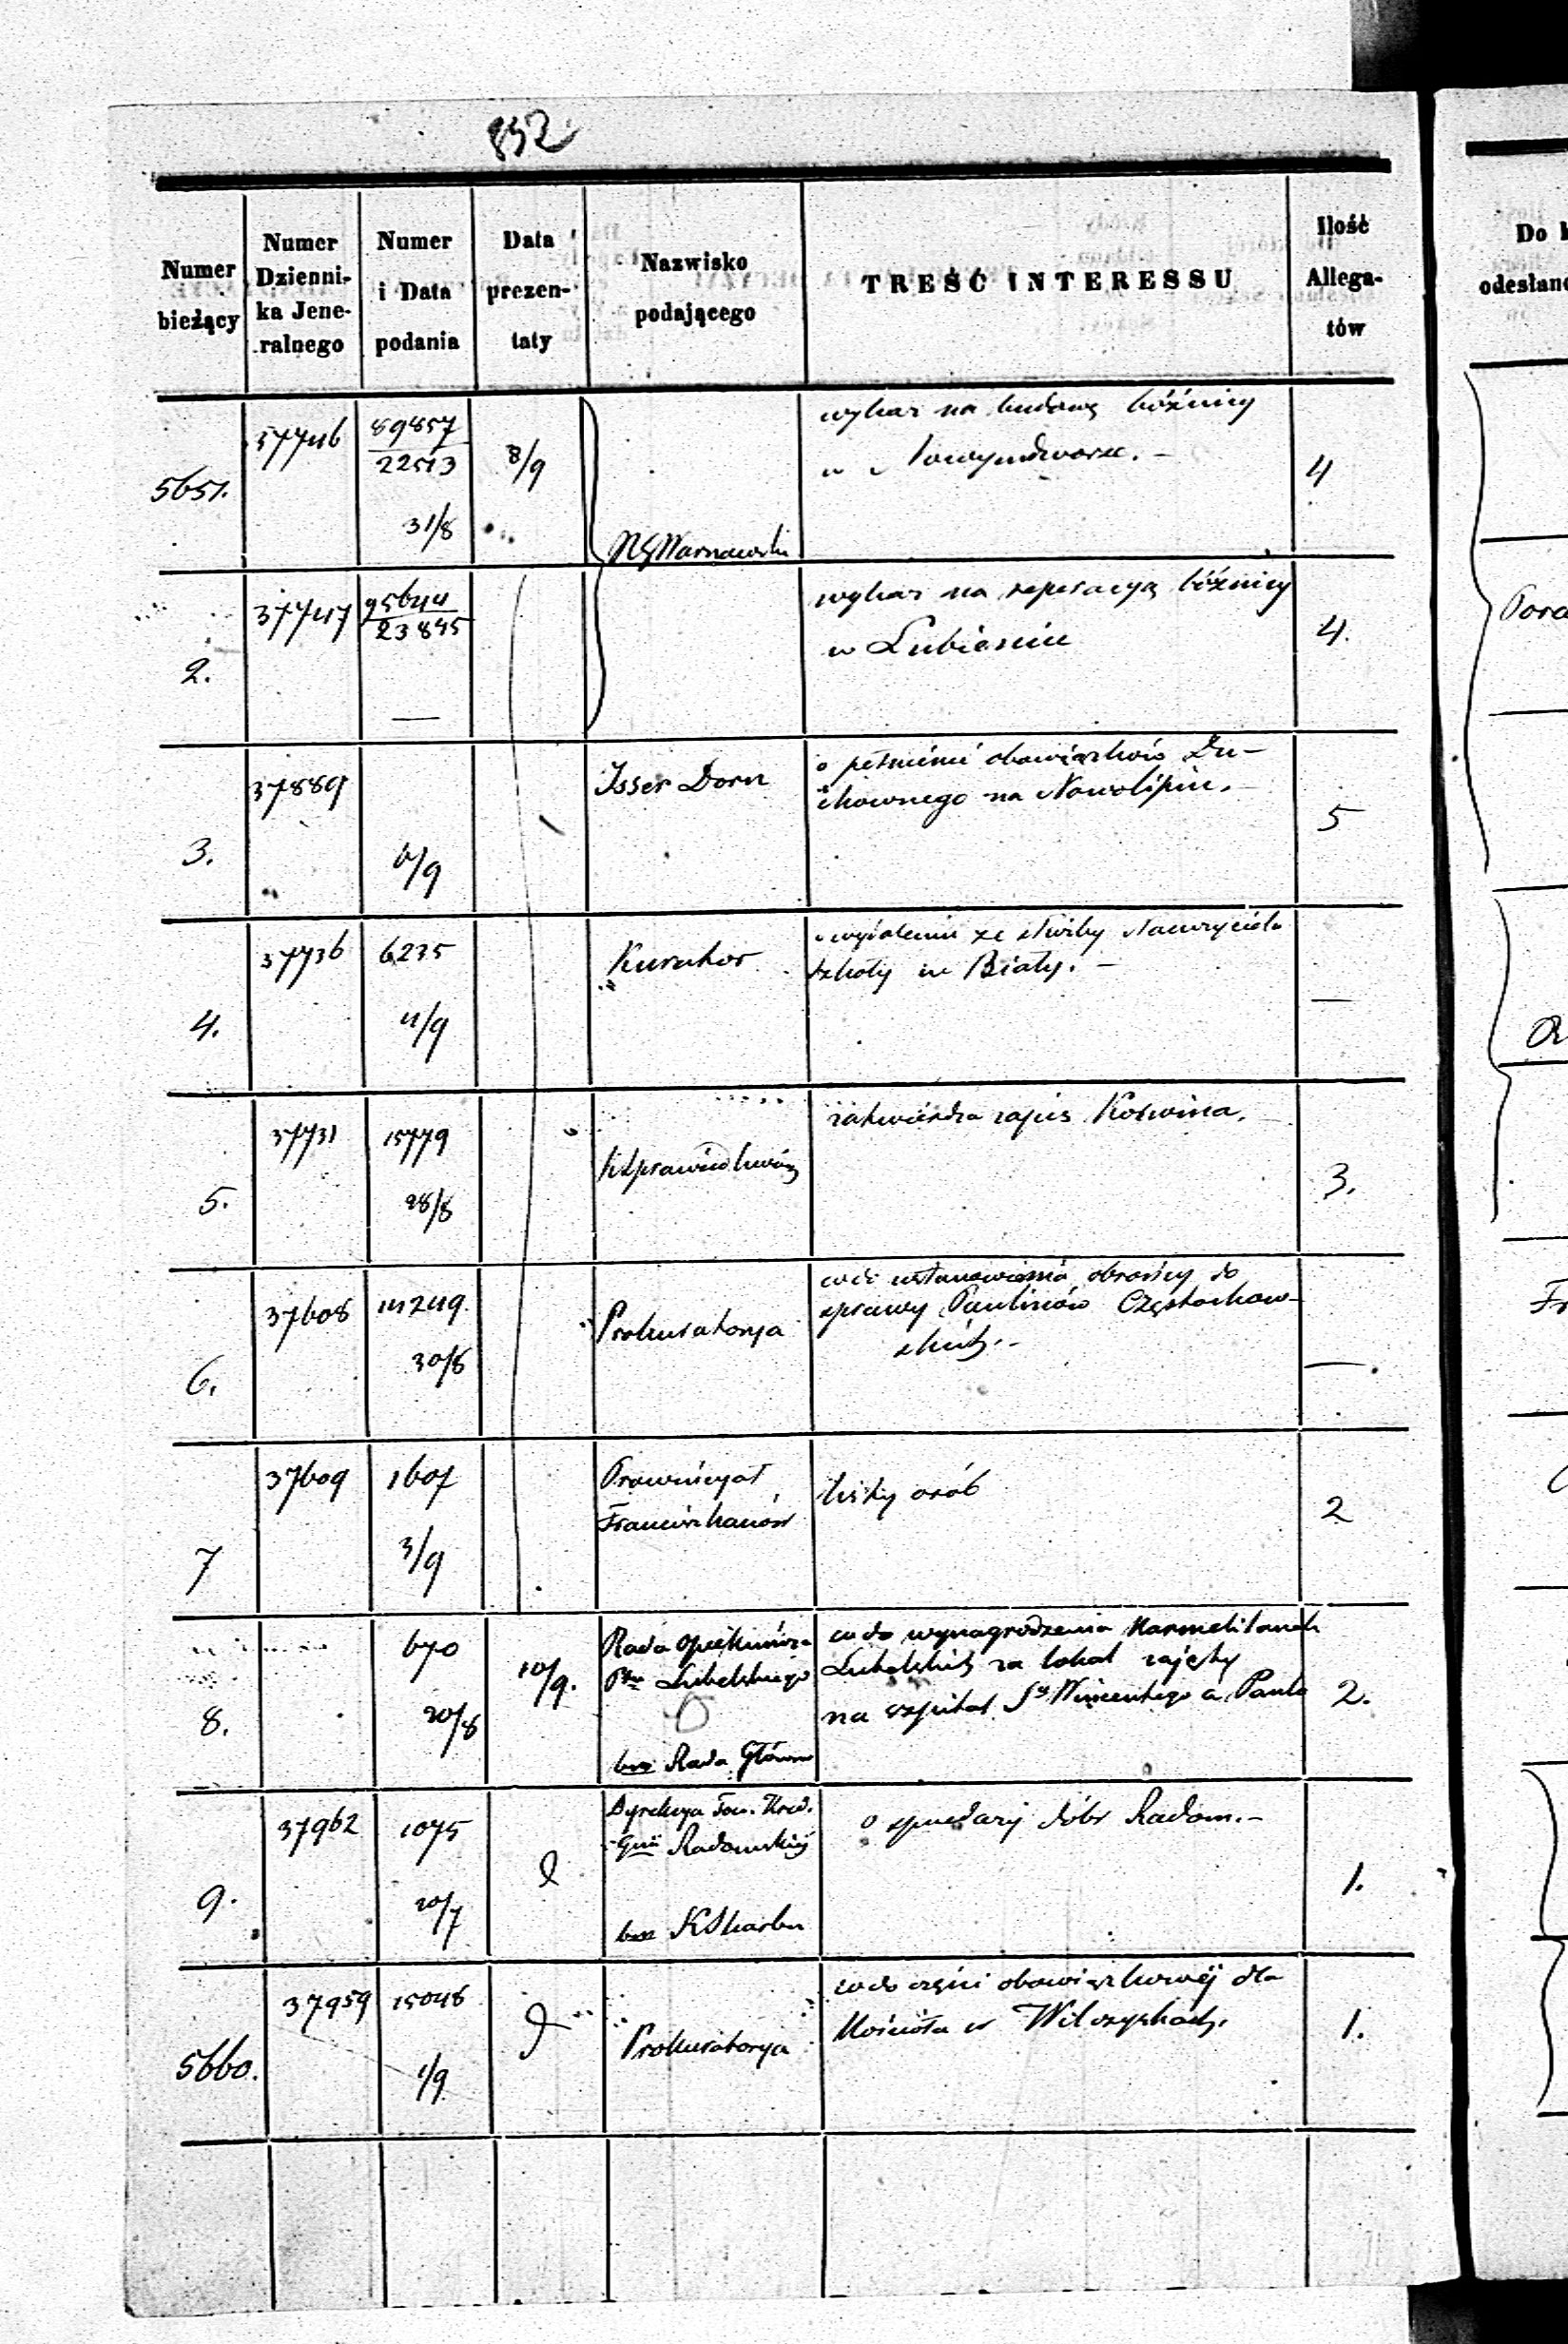 852
Numer bieżący
Numer Dzienni- ka Jene- ralnego
Numer i Data podania
Data prezen- taty
Nazwisko podającego
TREŚĆ INTERESSU
Ilość Allega- tów
Do
odesłano
5651.
37746
89857
22513
31/8
8/9
RGWarszawski
wykaz na budowę bóźnicy
w Nowymdworze. —
4
2.
37747
95644
23845
—
wykaz na reperacyą bóźnicy
w Lubieniu
4.
3.
37889
6/9
Isser Dorn
o pełnienie obowiązków Du-
chownego na Nowolipiu. —
5
4.
37736
6235
4/9
Kurator
o wydaleniu ze służby Nauczyciela
szkoły w Biały. —
—
5.
37731
15779
28/8
KSprawiedliwości
zatwierdza zapis Kotwina.
3.
6.
37608
14249.
30/8
Prokuratorya
co do ustanowienia obrońcy do
sprawy Paulinów Częstochow-
skich. —
—.
7
37609
1607
3/9
Prowincyał
Franciszkanów
listy osób
2
8.
670
20/8
10/9.
Rada Opiekuńcza
Ptu Lubelskiego
bez Rada Główna
co do wynagrodzenia Karmelitanek
Lubelskich za lokal zajęty
na szpital Sgo Wincentego a Paulo
2.
9.
37962
1075
20/7
Dyrekcya Tow. Kred.
Gnii Radomskiej
bez KSkarbu
o sprzedaży dóbr Radom. —
1.
5660.
37959
15048
1/9
Prokuratorya
co do części obowiązkowej dla
Kościoła w Wilczyskach.
1.